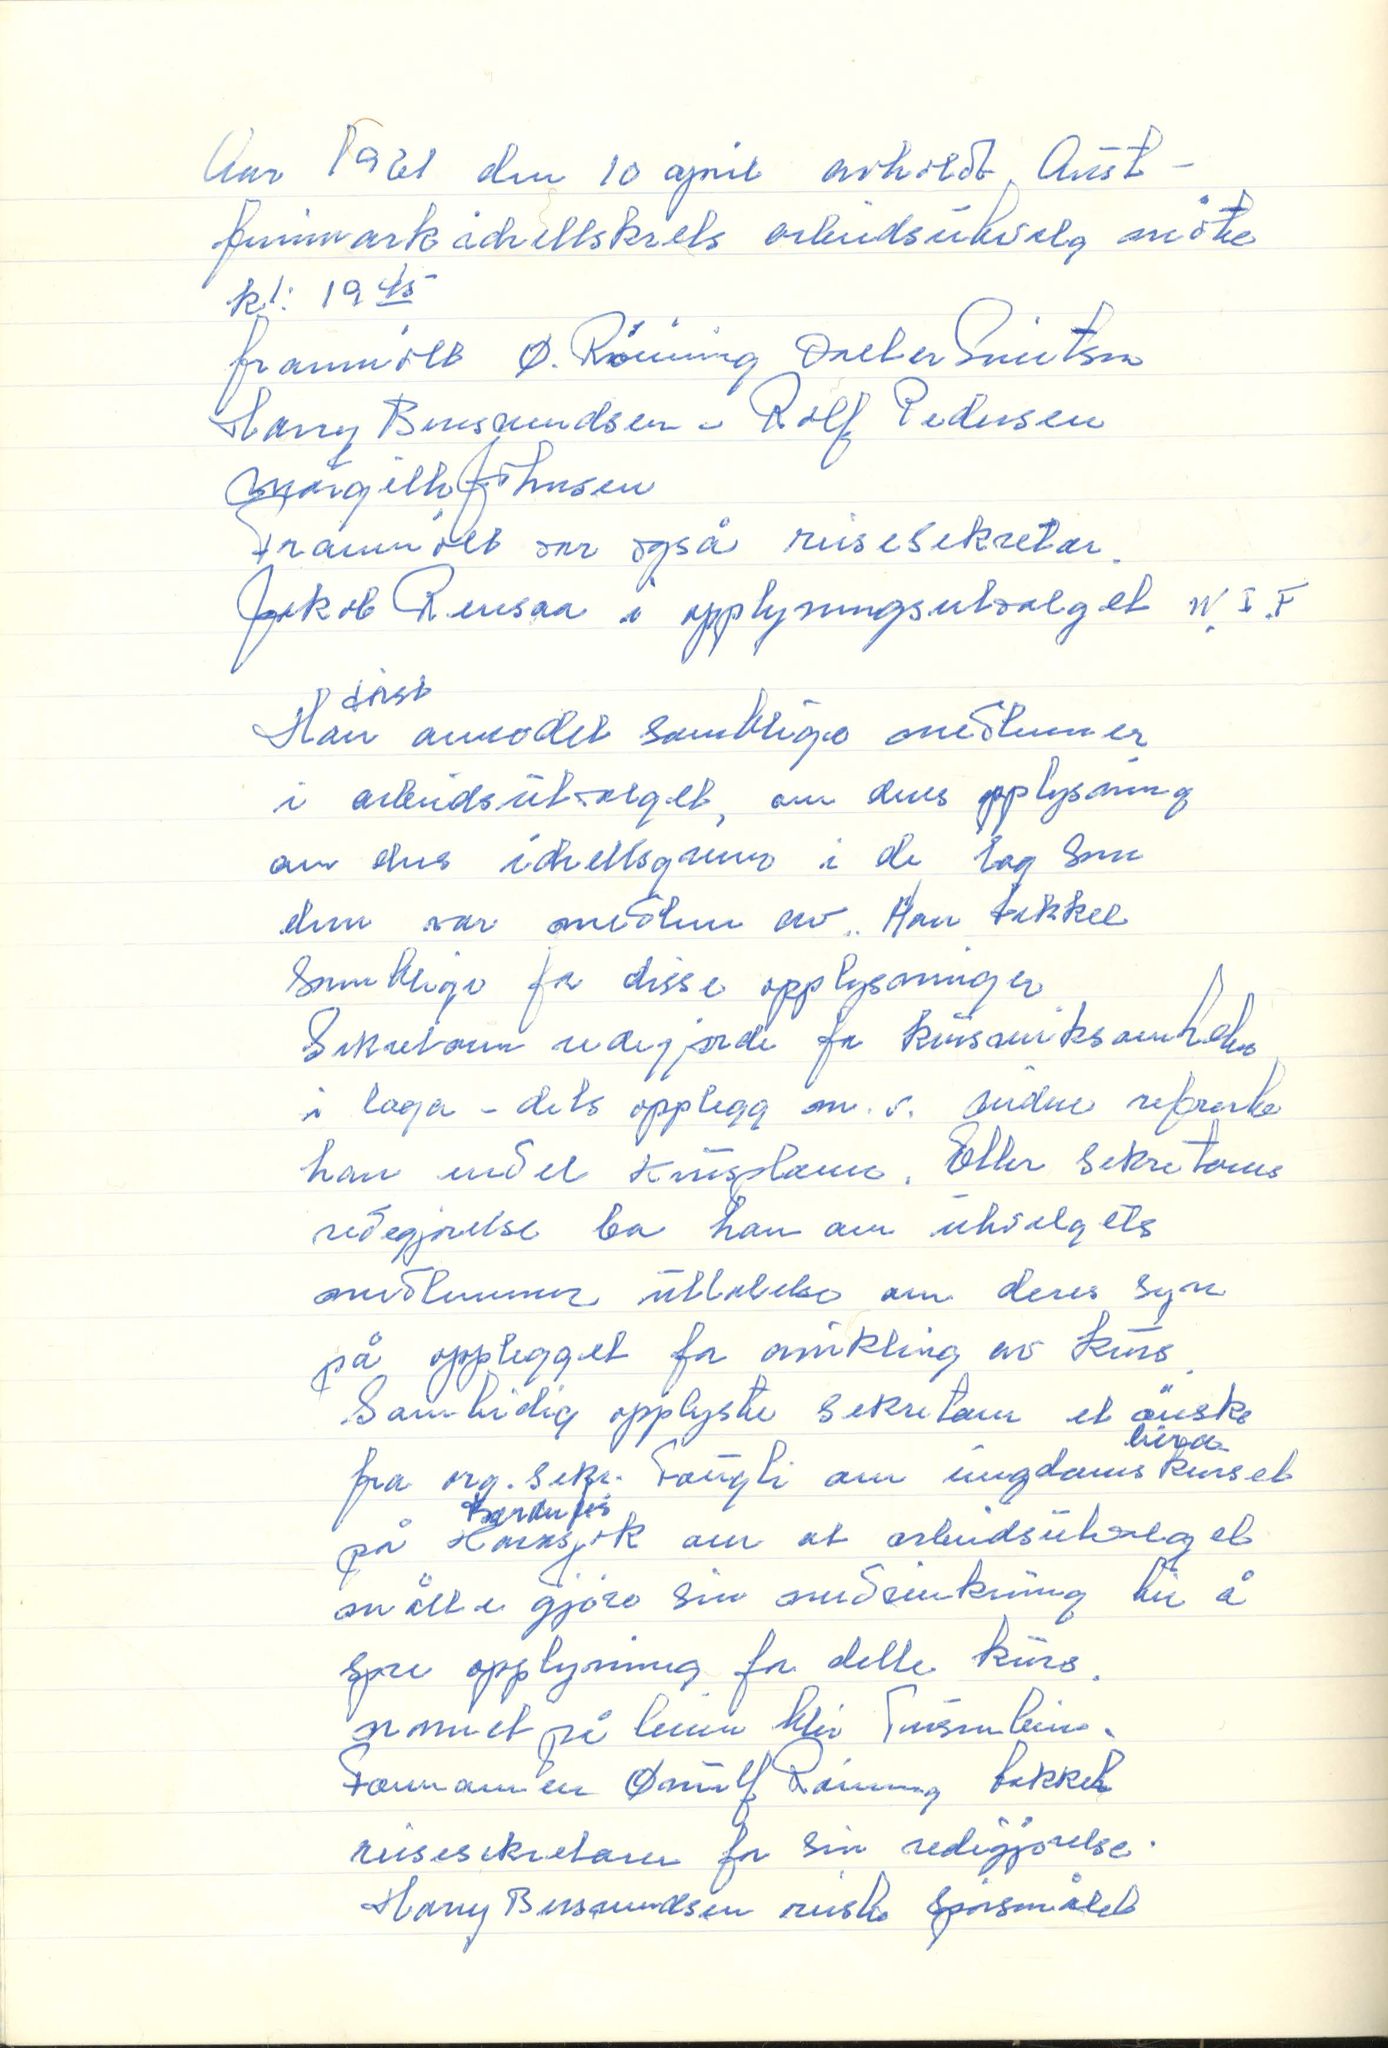 Aar 1961 den 10 april avholdt Aust-
finnmark idrettskrets arbeidsutvalg møte
kl: 19 45
frammött Ø. Röining Valter
Harry Bersvendsen - Rolf Pedersen
Margith Johnsen
Frammött var også reisesekretær.
Jakob Rensaa i opplysningsutvalget N.I.F
først
Han anmodet samtlige medlemmer
i arbeidsutvalget, om deres opplysning
om dens idrettsgrener i de lag som
dem var medlem av. Han takket
samtlige for disse opplysninger
Sekretæren redegjorde for kursvirksomheten
i laga - dets opplegg m.v. videre refererte
han endel kursplaner. Etter sekretærens
redegjørelse ba han om utvalgets
medlemmer uttalelse om deres syn
på opplegget for avvikling av kurs.
Samtidig opplyste sekretæren et önske
leira
fra org. sekr. Fougli om ungdomskurset
på Karasjok om at arbeidsutvalget
måtte gjöre sin medvirkning til å
spre opplysning for dette kurs.
navnet på leiren blir
Formannen Ørnulf Röining takket
reisesekretæren for sin redegjørelse.
Harry Bersvendsen reiste spörsmålet